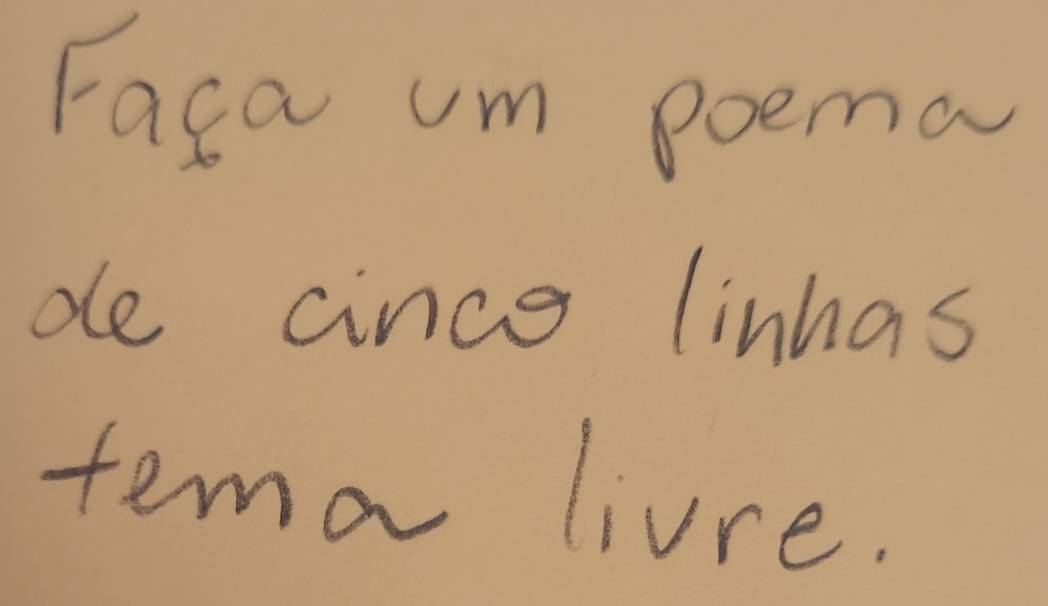 Faça um poema
de cinco linhas
tema livre.